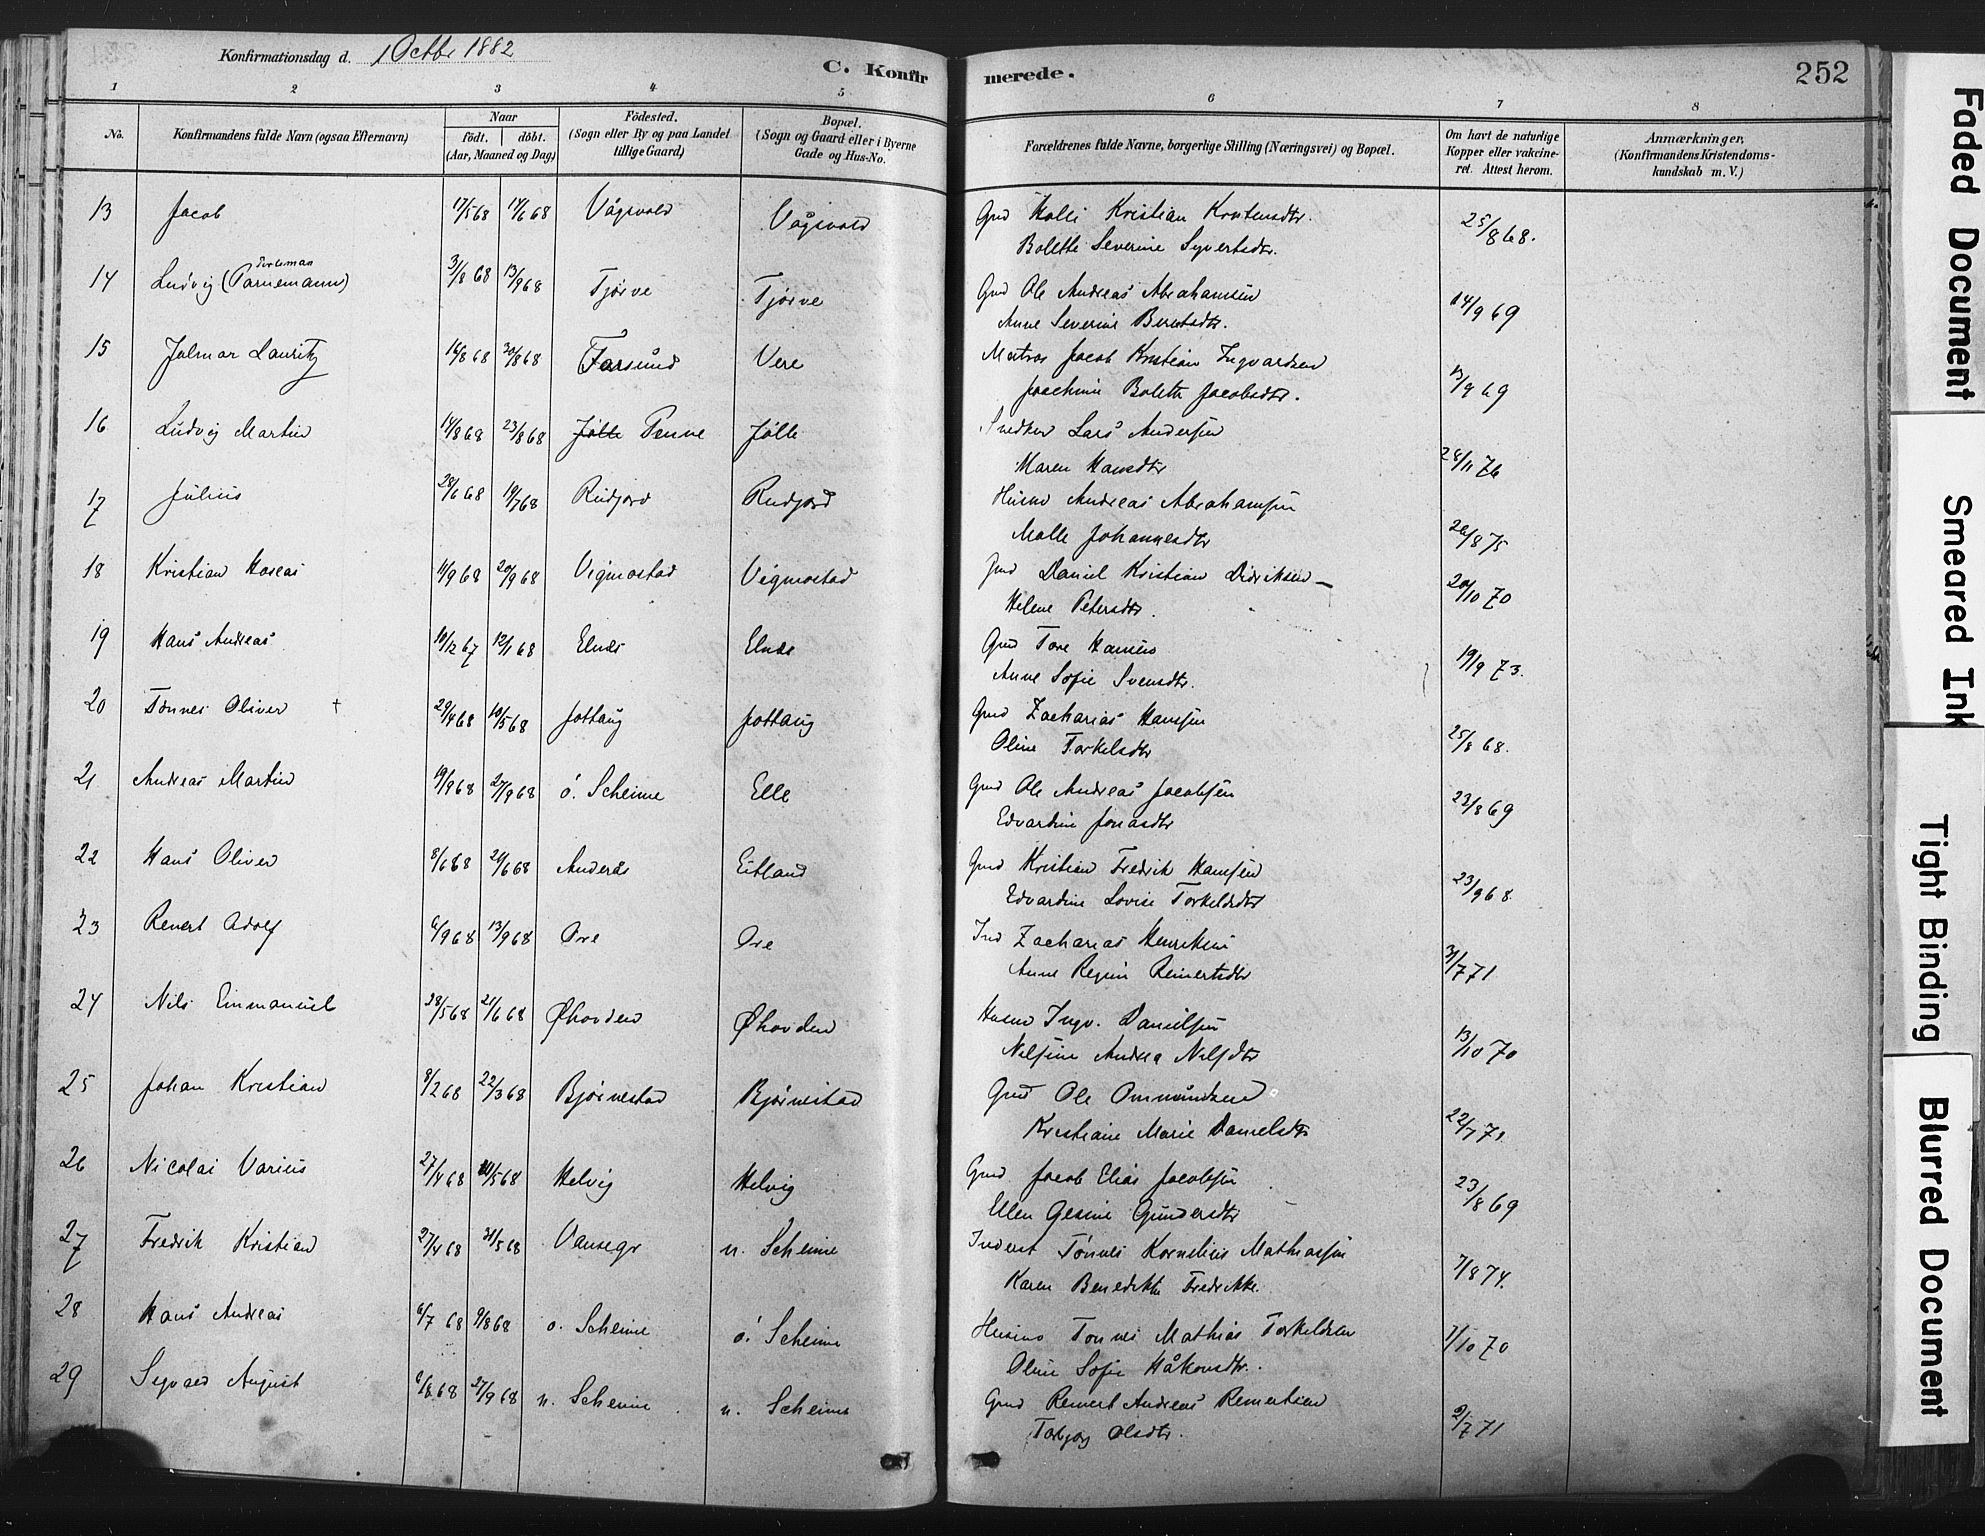 Konfirmationsdag d. 1 Octbr 1882
C. Konfirmerede.
252
1 2 3 4 5 6 7 8
No.
Konfirmandens fulde Navn (ogsaa Efternavn)
Naar
födt. döbt.
(Aar, Maaned og Dag)
Födested.
(Sogn eller By og paa Landet tillige Gaard)
Bopæl.
(Sogn og Gaard eller i Byerne Gade og Hus-No.
Forældrenes fulde Navne, borgerlige Stilling (Næringsvei) og Bopæl.
Om havt de naturlige Kopper eller vakcineret. Attest herom.
Anmærkninger,
(Konfirmandens Kristendomskundskab m. V.)
13 Jacob 17/5 68 14/6 68 Vågsvold Vågsvold Gmd Kristian 25/8 68.
Bolette Severine Syvertsdtr.
14 Ludvig 31/8 68 13/9 68 Tjörve Tjörve Gmd Ole Andreas Abrahamsen 14/9 69
Anne Severine Berntsdtr.
15 Jalmar Lauritz 16/8 68 30/8 68 Farsund Vere Matros Jacob Kristian Ingvardsen 13/9 69
Joachine Bolette Jacobsdtr.
16 Ludvig Martin 14/8 68 23/8 68 Jölle Penne Jölle Snedker Lars Andersen
Maren Hansdtr 28/11 76
17 Julius 28/6 68 19/7 68 Rudjord Rudjord Husmd Andreas Abrahamsen
Malle Johannesdtr 26/8 75
18 Kristian Hoseas 11/9 68 20/9 68 Vigmostad Vigmostad Gmd Daniel Kristian Didriksen 20/10 70
Helene Petersdtr.
19 Hans Andreas 10/12 67 12/1 68 Elnes Elnes Gmd Tore Hansen 19/9 73.
Anne Sofie Svensdtr.
20 Tönnes Oliver † 29/4 68 10/5 68 Jottaug Jottaug Gmd Zacharias Hansen
Oline Torkelsdtr 25/8 68.
21 Andreas Martin 19/9 68 27/9 68 ö. Scheime Elle Gmd Ole Andreas Jacobsen 23/8 69
Edvardine Jonasdtr
22 Hans Oliver 8/6 68 21/6 68 Anderås Eitland Gmd Kristian Fredrik Hansen 23/9 68
Edvardine Lovise Torkeldsdtr
23 Renert Adolf 6/9 68 13/9 68 Ore Ore Ind Zacharias Henriksen
Anne Regine Reinertsdtr 31/7 71
24 Nils Emmanuel 28/5 68 21/6 68 Øhovden Øhovden Husmd Ingv. Danielsen
Nilsine Andrea Nilsdtr 13/10 70
25 Johan Kristian 8/2 68 22/3 68 Björnestad Björnestad Gmd Ole Ommundsen
Kristiane Marie Danielsdtr 22/7 71
26 Nicolai Varius 27/4 68 Helvig Helvig Gmd Jacob Elias Jacobsen 23/8 69
Ellen Gesine Gundersdtr
27 Fredrik Kristian 27/4 68 31/5 68 Vansegr n. Scheime Tönnes Kornelius Mathiassen
Karen Benedikte Fredrikke. 7/8 74.
28 Hans Andreas 6/7 68 9/8 68 ö. Scheime ö. Scheime Husmd Tönnes Mathias Torkeldsen 7/10 70
Oline Sofie Håkonsdtr.
29 Sigvard August 6/8 68 27/9 68 n. Scheime n. Scheime Gmd Reinert Andreas Reinertsen
Torbjørg Olsdtr. 2/7 71
Faded Document
Smeared Ink
Tight Binding
Blurred Document